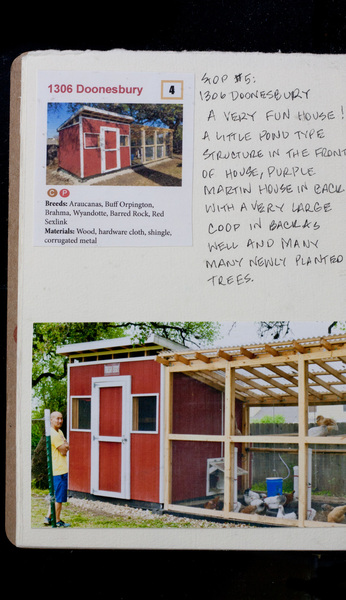 1306 Doonesbury
4
C P
Breeds: Araucanas, Buff Orpington,
Brahma, Wyandotte, Barred Rock, Red
Sexlink
Materials: Wood, hardware cloth, shingle,
corrugated metal
STOP #5:
1306 DOONESBURY
A VERY FUN HOUSE!
A LITTLE POND TYPE
STRUCTURE IN THE FRONT
OF HOUSE, PURPLE
MARTIN HOUSE IN BACK
WITH A VERY LARGE
COOP IN BACK AS
WELL AND MANY
MANY NEWLY PLANTED
TREES.